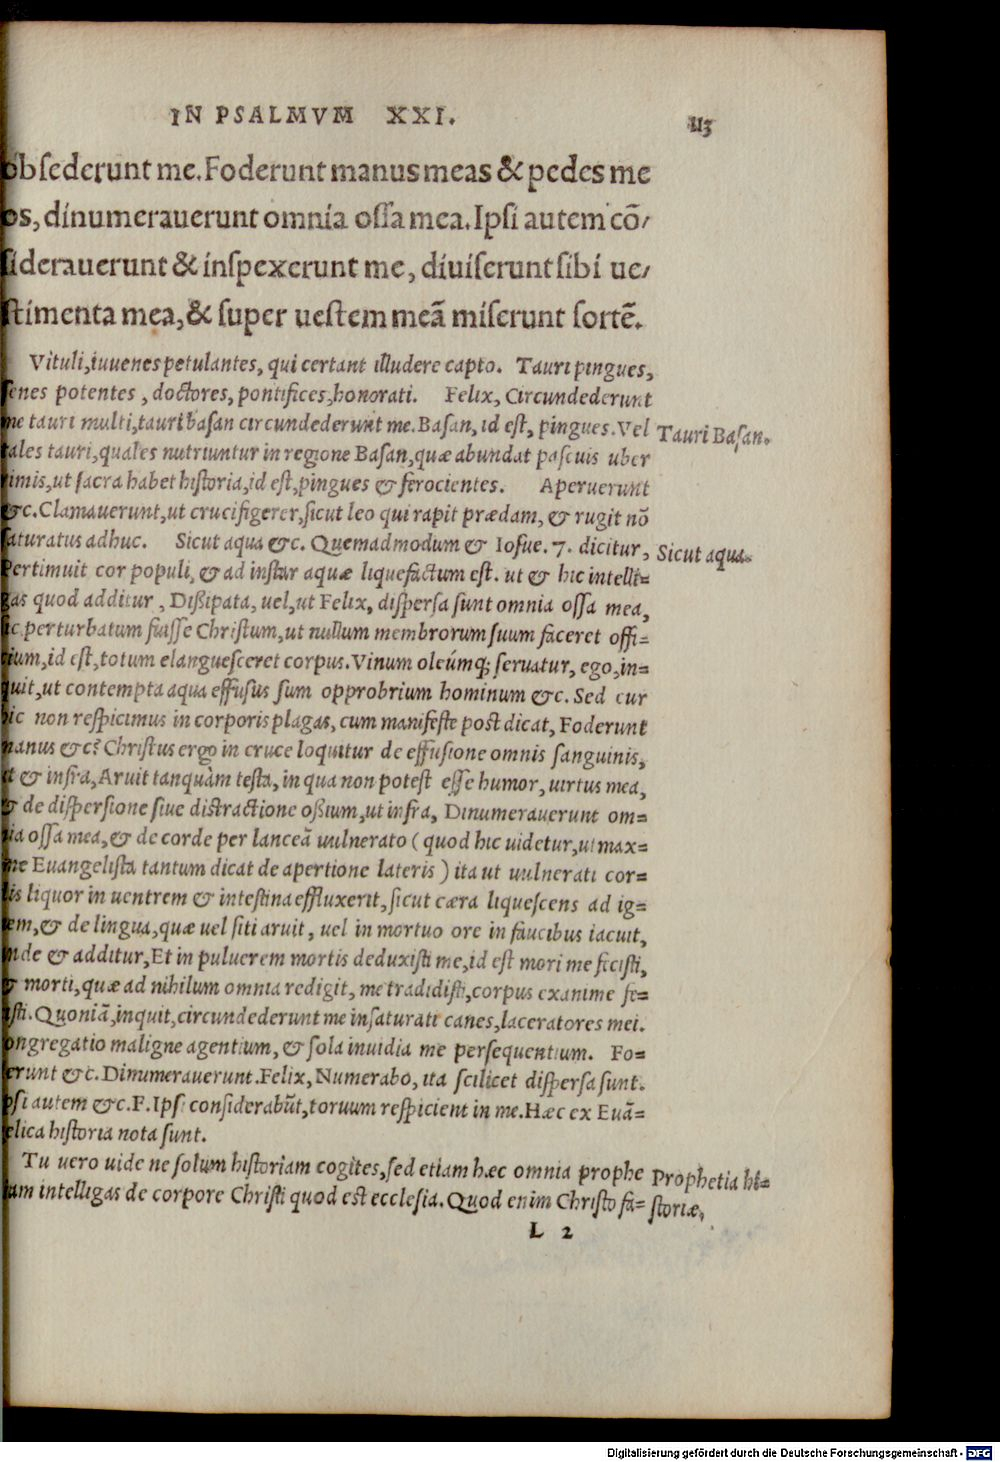 IN PSALMVM XXI. 113
obsederunt me. Foderunt manus meas & pedes me
os, dinumerauerunt omnia ossa mea. Ipsi autem cõ/
siderauerunt & inspexerunt me, diuiserunt sibi ue/
stimenta mea, & super uestem meã miserunt sortẽ.
Vituli, iuuenes petulantes, qui certant illudere capto. Tauri pingues,
senes potentes, doctores, pontifices, honorati. Felix, Circundederunt
me tauri multi, tauri basan circundederunt me. Basan, id est, pingues. Vel
Tauri Basan.
tales tauri, quales nutriuntur in regione Basan, quæ abundat pascuis uber
rimis, ut sacra habet historia, id est, pingues & ferocientes. Aperuerunt
&c. Clamauerunt, ut crucifigerer, sicut leo qui rapit prædam, & rugit nõ
saturatus adhuc. Sicut aqua &c. Quemadmodum & Iosue. 7. dicitur,
Sicut aqua.
Pertimuit cor populi, & ad instar aquæ liquefactum est. ut & hic intelli=
gas quod additur, Dißipata, uel, ut Felix, dispersa sunt omnia ossa mea,
sic perturbatum fuisse Christum, ut nullum membrorum suum faceret offi=
cium, id est, totum elanguesceret corpus. Vinum oleúmq; seruatur, ego, in=
quit, ut contempta aqua effusus sum opprobrium hominum &c. Sed cur
hic non respicimus in corporis plagas, cum manifeste post dicat, Foderunt
manus &c? Christus ergo in cruce loquitur de effusione omnis sanguinis,
ut & infra, Aruit tanquàm testa, in qua non potest esse humor, uirtus mea,
& de dispersione siue distractione oßium, ut infra, Dinumerauerunt om=
nia ossa mea, & de corde per lanceã uulnerato (quod hic uidetur, ut max=
ime Euangelista tantum dicat de apertione lateris) ita ut uulnerati cor=
dis liquor in uentrem & intestina effluxerit, sicut cæra liquescens ad ig=
nem, & de lingua, quæ uel siti aruit, uel in mortuo ore in faucibus iacuit,
unde & additur, Et in puluerem mortis deduxisti me, id est mori me fecisti,
& morti, quæ ad nihilum omnia redigit, me tradidisti, corpus exanime fe=
cisti. Quoniã, inquit, circundederunt me insaturati canes, laceratores mei.
Congregatio maligne agentium, & sola inuidia me persequentium. Fo=
derunt &c. Dinumerauerunt. Felix, Numerabo, ita scilicet dispersa sunt.
Ipsi autem &c. F. Ipsi considerabũt, toruum respicient in me. Hæc ex Euã=
gelica historia nota sunt.
Tu uero uide ne solum historiam cogites, sed etiam hæc omnia prophe
Prophetia hi=
tiam intelligas de corpore Christi quod est ecclesia. Quod enim Christo fa=
storiæ,
L 2
Digitalisierung gefördert durch die Deutsche Forschungsgemeinschaft - DFG